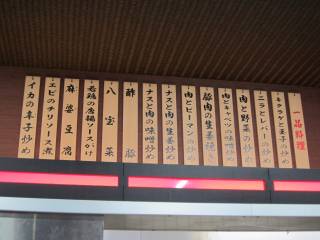 一品料理
キクラゲと玉子の炒め
ニラとレバーの炒め
肉とキャベツの味噌炒め
肉と野菜の炒め
豚肉の生姜焼き
肉とピーマンの炒め
ナスと肉の生姜炒め
ナスと肉の味噌炒め
酢豚
八宝菜
若鶏の唐揚ソースがけ
麻婆豆腐
エビのチリソース煮
イカの辛子炒め